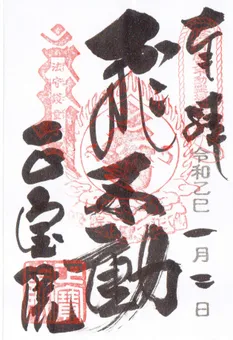 奉拝
令和乙巳
一月二日
飛不動
正宝院